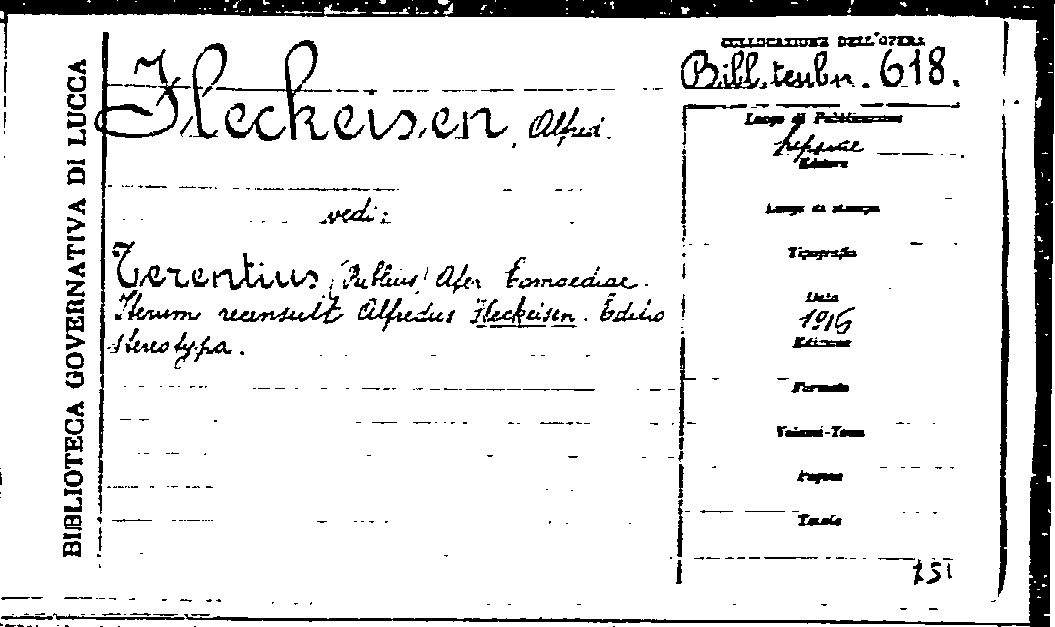 BIBLIOTECA GOVERNATIVA DI LUCCA
Fleckeisen, Alfred.
vedi:
Terentius (Publius) Afer Comoediae.
Iterum recensuit Alfredus Fleckeisen. Editio
stereotypa.
COLLOCAZIONE DELL'OPERA
Bibl. teubn. 618.
Luogo di Pubblicazione
Lipsiae
Editore
Luogo di stampa
Tipografia
Data
1916
Edizione
Formato
Volumi-Tomi
Pagine
Tavole
251